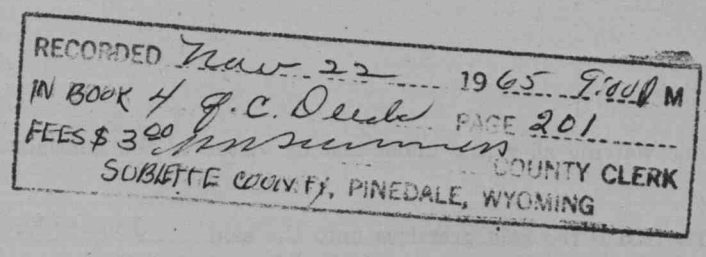 RECORDED Nov 22 1965 9:00 A M
IN BOOK 4 Q.C. Deeds PAGE 201
FEES $ 3 00 COUNTY CLERK
SUBLETTE COUNTY, PINEDALE, WYOMING